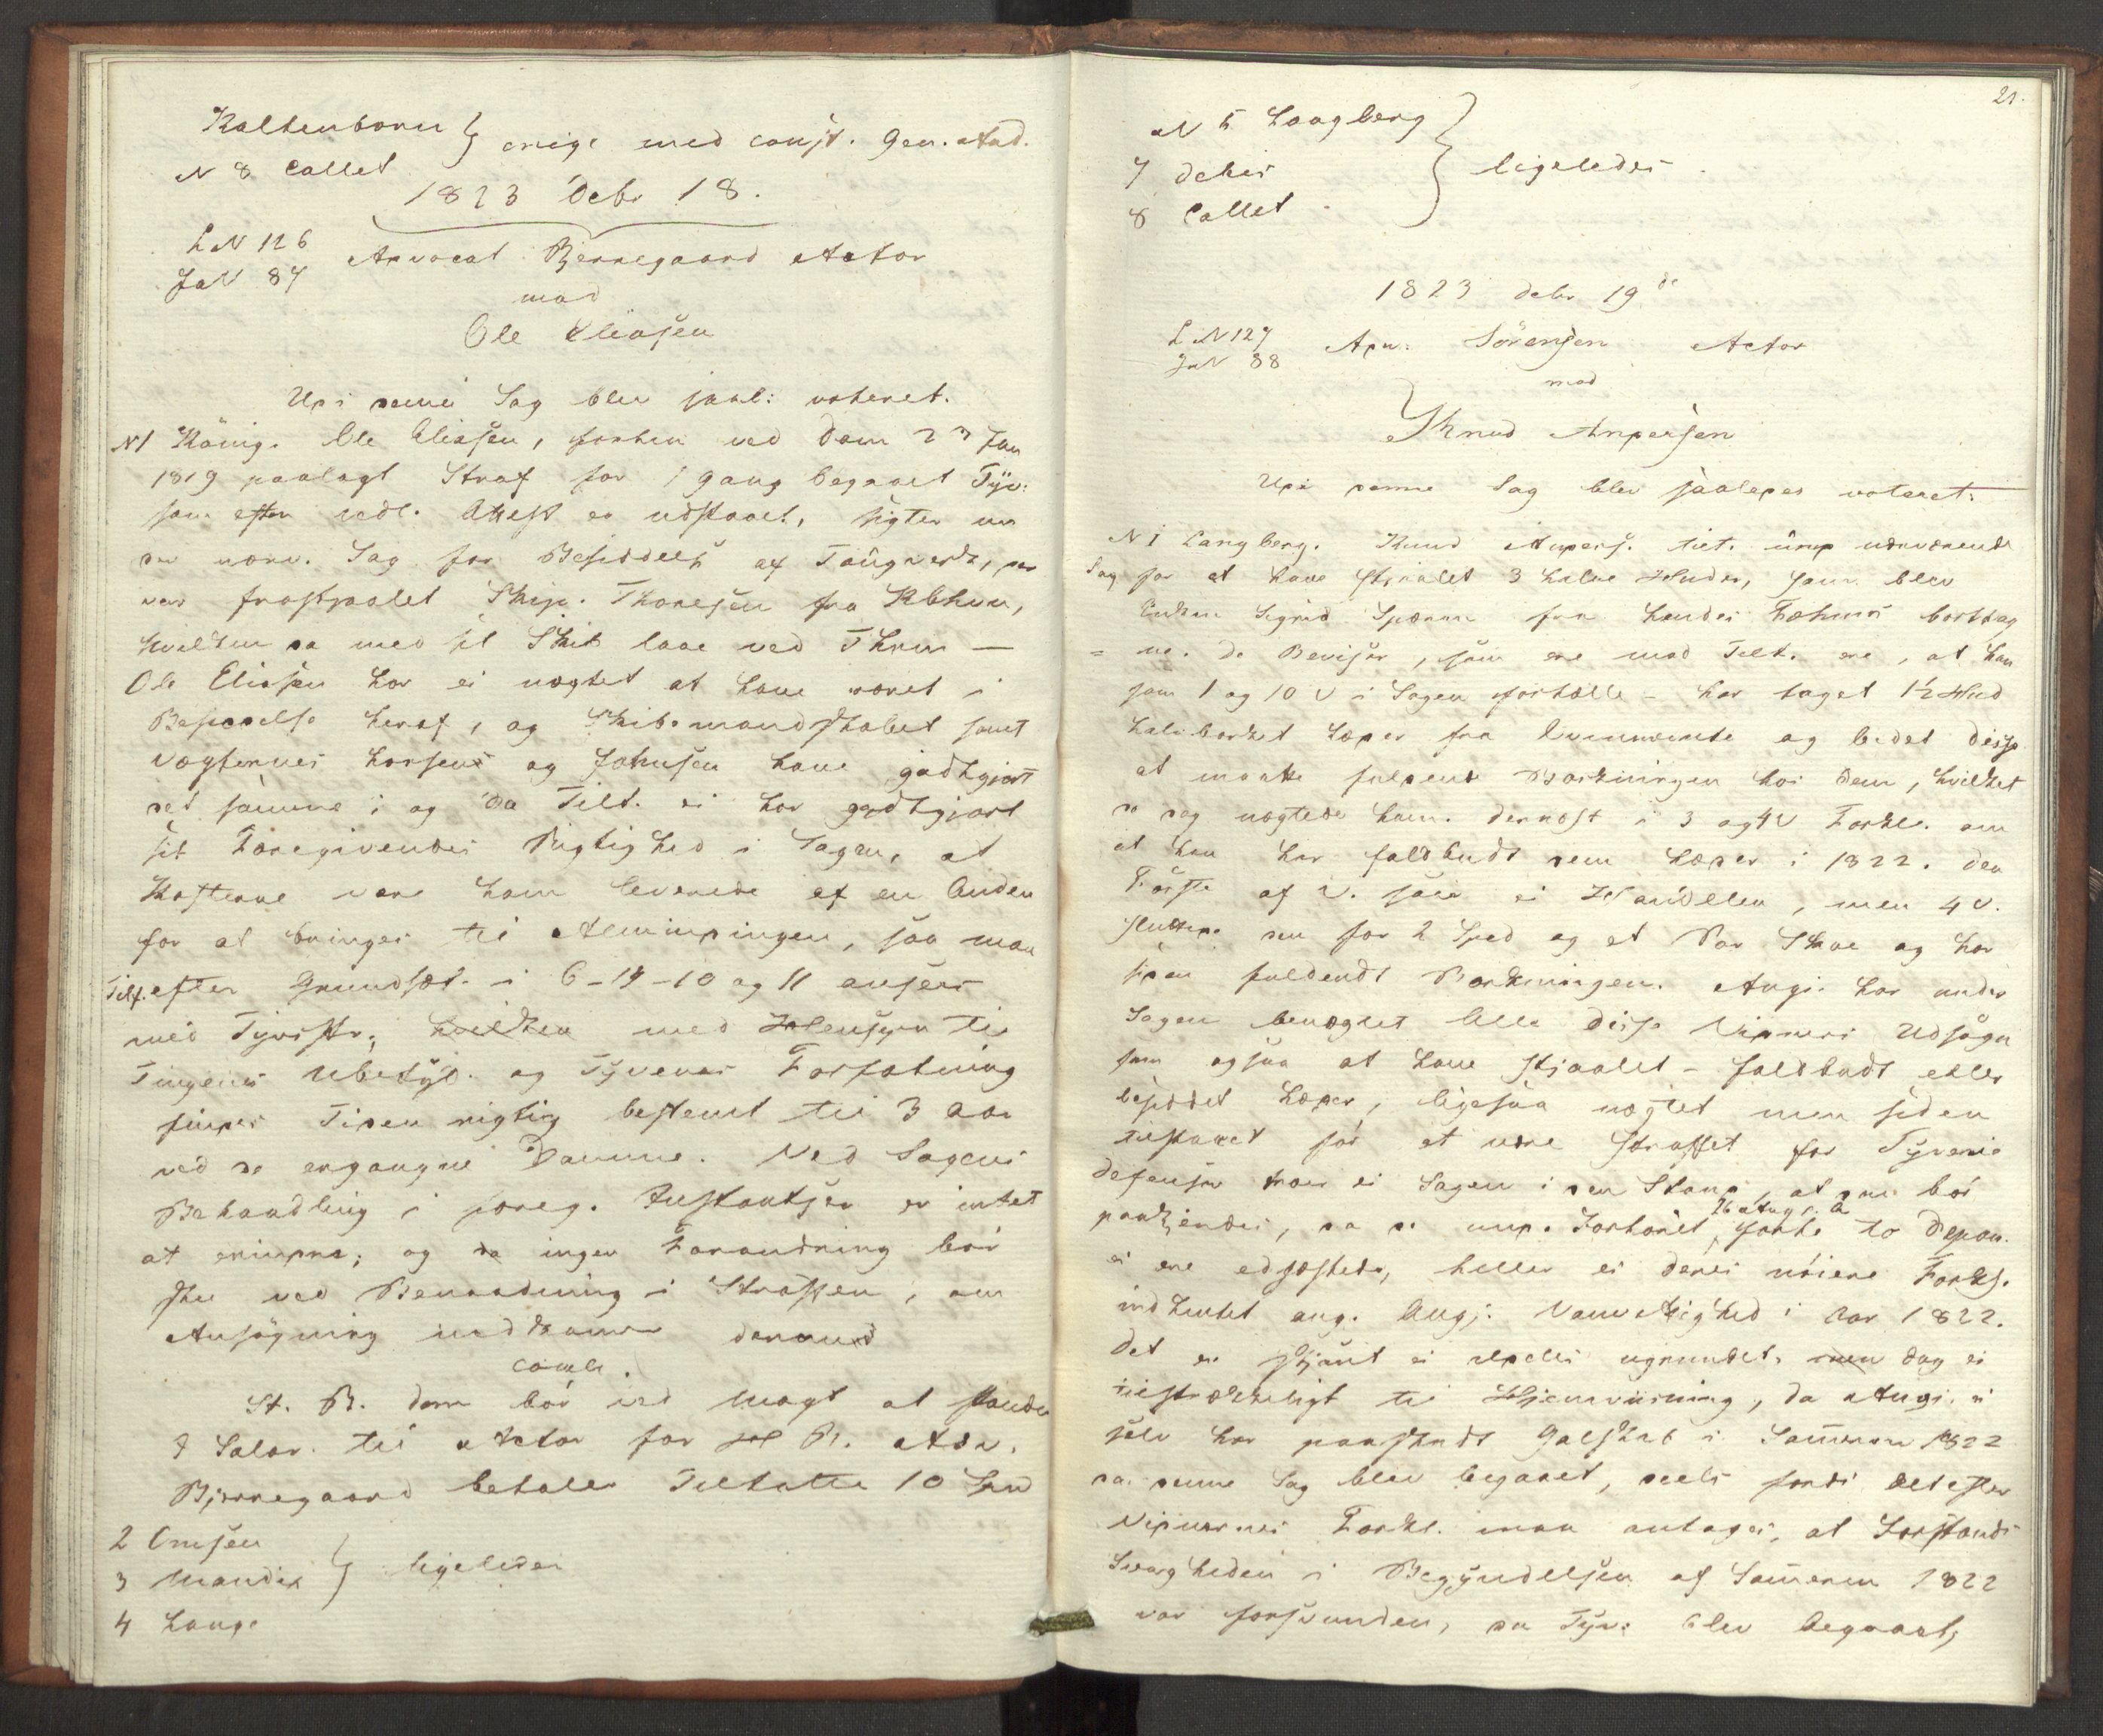 Kaltenborn } enige med const. Gen. Aud.
N 8 Collet
1823 Debr 18.
L N 126
J N 87 Advocat Bjerregaard Actor
mod
Ole Eliasen
Udi denne Sag blev saal: voteret.
N 1 König. Ole Eliasen, forhen ved Dom 2 Jan
1819 paalagt Straf for 1 Gang begaaet Tyv:
som efter vedl. Attest er udstaaet, sigtes un
der nærv. Sag for Besiddelse af Tougverk, der
var frastjaalet Skip. Thoresen fra Kbhvn,
hvilken da med sit Skib laae ved Thrm —
Ole Eliasen har ei nægtet at have været i
Besiddelse heraf, og Skibsmandskabet samt
Vægternes Larsens og Johnsen have godtgjort
det samme; og da Tilt. ei har godtgjort
sit Foregivendes Rigtighed i Sagen, at
Kosterne vare ham leverede af en Anden
for at bringes til Almindingen, saa maa
Tilt. efter Grundsæt. i 6-17-10 og 11 ansees
med Tyvsstr; hvilken med Hensyn til
Tingenes Ubetyd. og Tyvenes Forfatning
findes Tiden rigtig bestemt til 3 Aar
ved de ergangne Domme. Ved Sagens
Behandling i foreg. Instantser er intet
at erindre; og da ingen Forandring bør
skee ved Benaadning i Straffen, om
Ansøgning indkommer derom
concl.
St. B. Dom bør ved Magt at stande
I Salar. til Actor for H R. Adv.
Bjerregaard betaler Tiltalte 10 Spd
2 Omsen
3 Mandix } ligeledes
4 Lange
21.
N 5 Langberg
7 Debes } ligeledes
8 Collet
1823 Debr 19de
L N 127
J N 88 Adv: Sörensen Actor
mod
Knud Andersen
Udi denne Sag blev saaledes voteret:
N 1 Langberg. Knud Anders. tilt. und nærværende
Sag for at have stjaalet 3 halve Huder, som blev
Enken Sigrid fra hendes Fæhuus borttag
= ne. De Beviser, som ere mod Tilt. ere, at han
som 1 og 10 V i Sagen fortælle - har taget 1½ Hud
halvbarket Læder fra og bedet disse
at maatte fuldende Barkningen hos dem, hvilket
de dog nægtede ham. Dernæst i 3 og 4 V Forkl. om
at han har falbudt dem Læder i 1822. Den
Første af V. saae ei Handelen, men 4 V.
sluttede den for 2 Spd og et Par Skoe og har
siden fuldendt Barkningen. Angj. har under
Sagen benægtet Alle disse Vidners Udsagn
som ogsaa at have stjaalet - falbudt eller
besiddet Læder, ligesaa nægtet men siden
tilstaaet før at være straffet for Tyverie
Defensor troer ei Sagen i den Stand, at den bør
paakjendes, da de und. Forhöret 26 Aug s. A. førte to Depon.
ei ere edfæstede, heller ei deres nöiere Forkl.
indhentet ang. Angj. Vanvittighed i Aar 1822.
Det er skjønt ei aldeles ugrundet, men dog ei
tilstrækkeligt til Hjemviisning, da Angj. ei
selv har paastaadt Galskab i Sommeren 1822
da denne Sag blev begaaet, deels fordi det efter
Vidnernes Forkl. maa antages, at Forstands
Svagheden i Begyndelsen af Sommeren 1822
var forsvunden, da Tyv: blev begaaet,